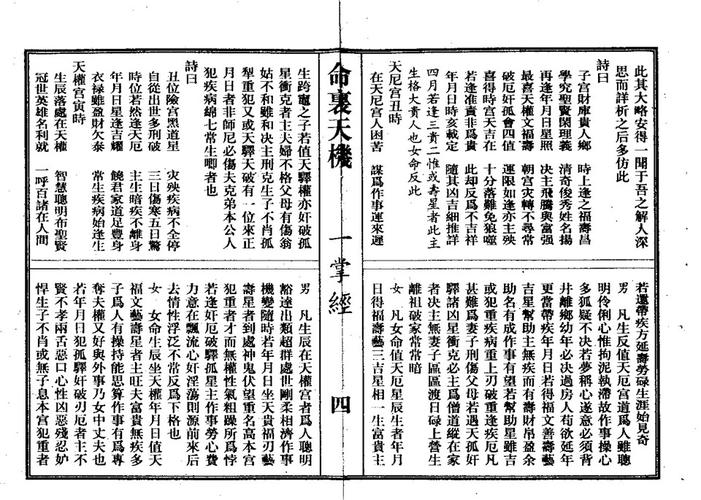 此其大略安得一聞于吾之解人深
思而詳析之后多仿此
詩曰
子宮財庫貴人鄉　時上逢之福壽昌
學究聖賢閑理義　清奇俊秀姓名揚
再逢年月日星照　決主飛騰與富强
最喜天權文福壽　朝宮灾轉不尋常
破厄奸孤會四值　運限如逢亦主殃
喜得時宮天吉在　十分落難免狼噬
若逢准責非爲貴　此却反爲不吉祥
年月日時亥載定　隨其凶吉細推詳
四月若逢三貴二惟或壽星者此主
生格大貴人也女命反此
天尼宮丑時
在天尼宮人困苦　謀爲作事運來遲
若還帶疾方延壽勞碌生涯始見奇
男　凡生反值天厄宮道爲人雖聰
明伶俐心惟拘泥執滯故作事操心
多狐疑不決若夢稱心遂意必須背
井離鄉幼年必決過房人苟欲延年
更當帶疾年月日若得福文善壽藝
吉星幫助主長壽而有壽財帛盈余
助名有成作事有望若幫助星雖吉
或犯重疾病重上刃破重逢疾厄凡
甚難爲妻子刑傷父母若遇天孤奸
驛諸凶星衝克必主爲僧道縱在家
者决主無妻子區區渡日碌上營生
離祖破家常常暗
女　凡女命值天厄星辰生者年月
日得福壽藝三吉星相一生富貴主
命裏天機　一掌經　四
生跨竈之子若值天驛權亦奸破孤
星衝克者主夫婦不格父母有傷翁
姑不和雖和决主刑克生子不肖孤
犁重犯又或天驛天破有一位來正
月日者非師尼必傷夫克弟本公人
犯疾病綿七常生卿者也
詩曰
丑位險宮黑道星　灾殃疾病不全停
自從出世多刑破　三日傷寒五日驚
時位若然逢天厄　主生暗疾不離身
年月日星逢吉耀　饒君家道足豊身
衣禄雖盈財欠泰　常生疾病始逢生
天權宮寅時
生辰落處在天權　智慧聰明布聖賢
冠世英雄名利就　一呼百諸在人間
男　凡生辰在天權宮者爲人聰明
豁達出類超群處世剛柔相濟作事
機變隨時若年月日坐天貴福刃藝
壽星者到處神鬼伏望重名高本宮
犯重者才而無權性氣粗躁所爲悖
若逢奸厄破驛孤星主作事勞心費
力意在飄流心奸淫蕩則源前來后
去情性浮泛不常反爲下格也
女　女命生辰坐天權年月日值天
福文藝壽星者主旺夫富貴無疾多
子爲人有操持能思算作事有爲專
奪夫權又好與外事乃女中丈夫也
若年月日犯孤驛奸破刃厄者主不
賢不孝兩舌惡口心性凶惡殘忍妒
悍生子不肖或無子息本宮犯重者